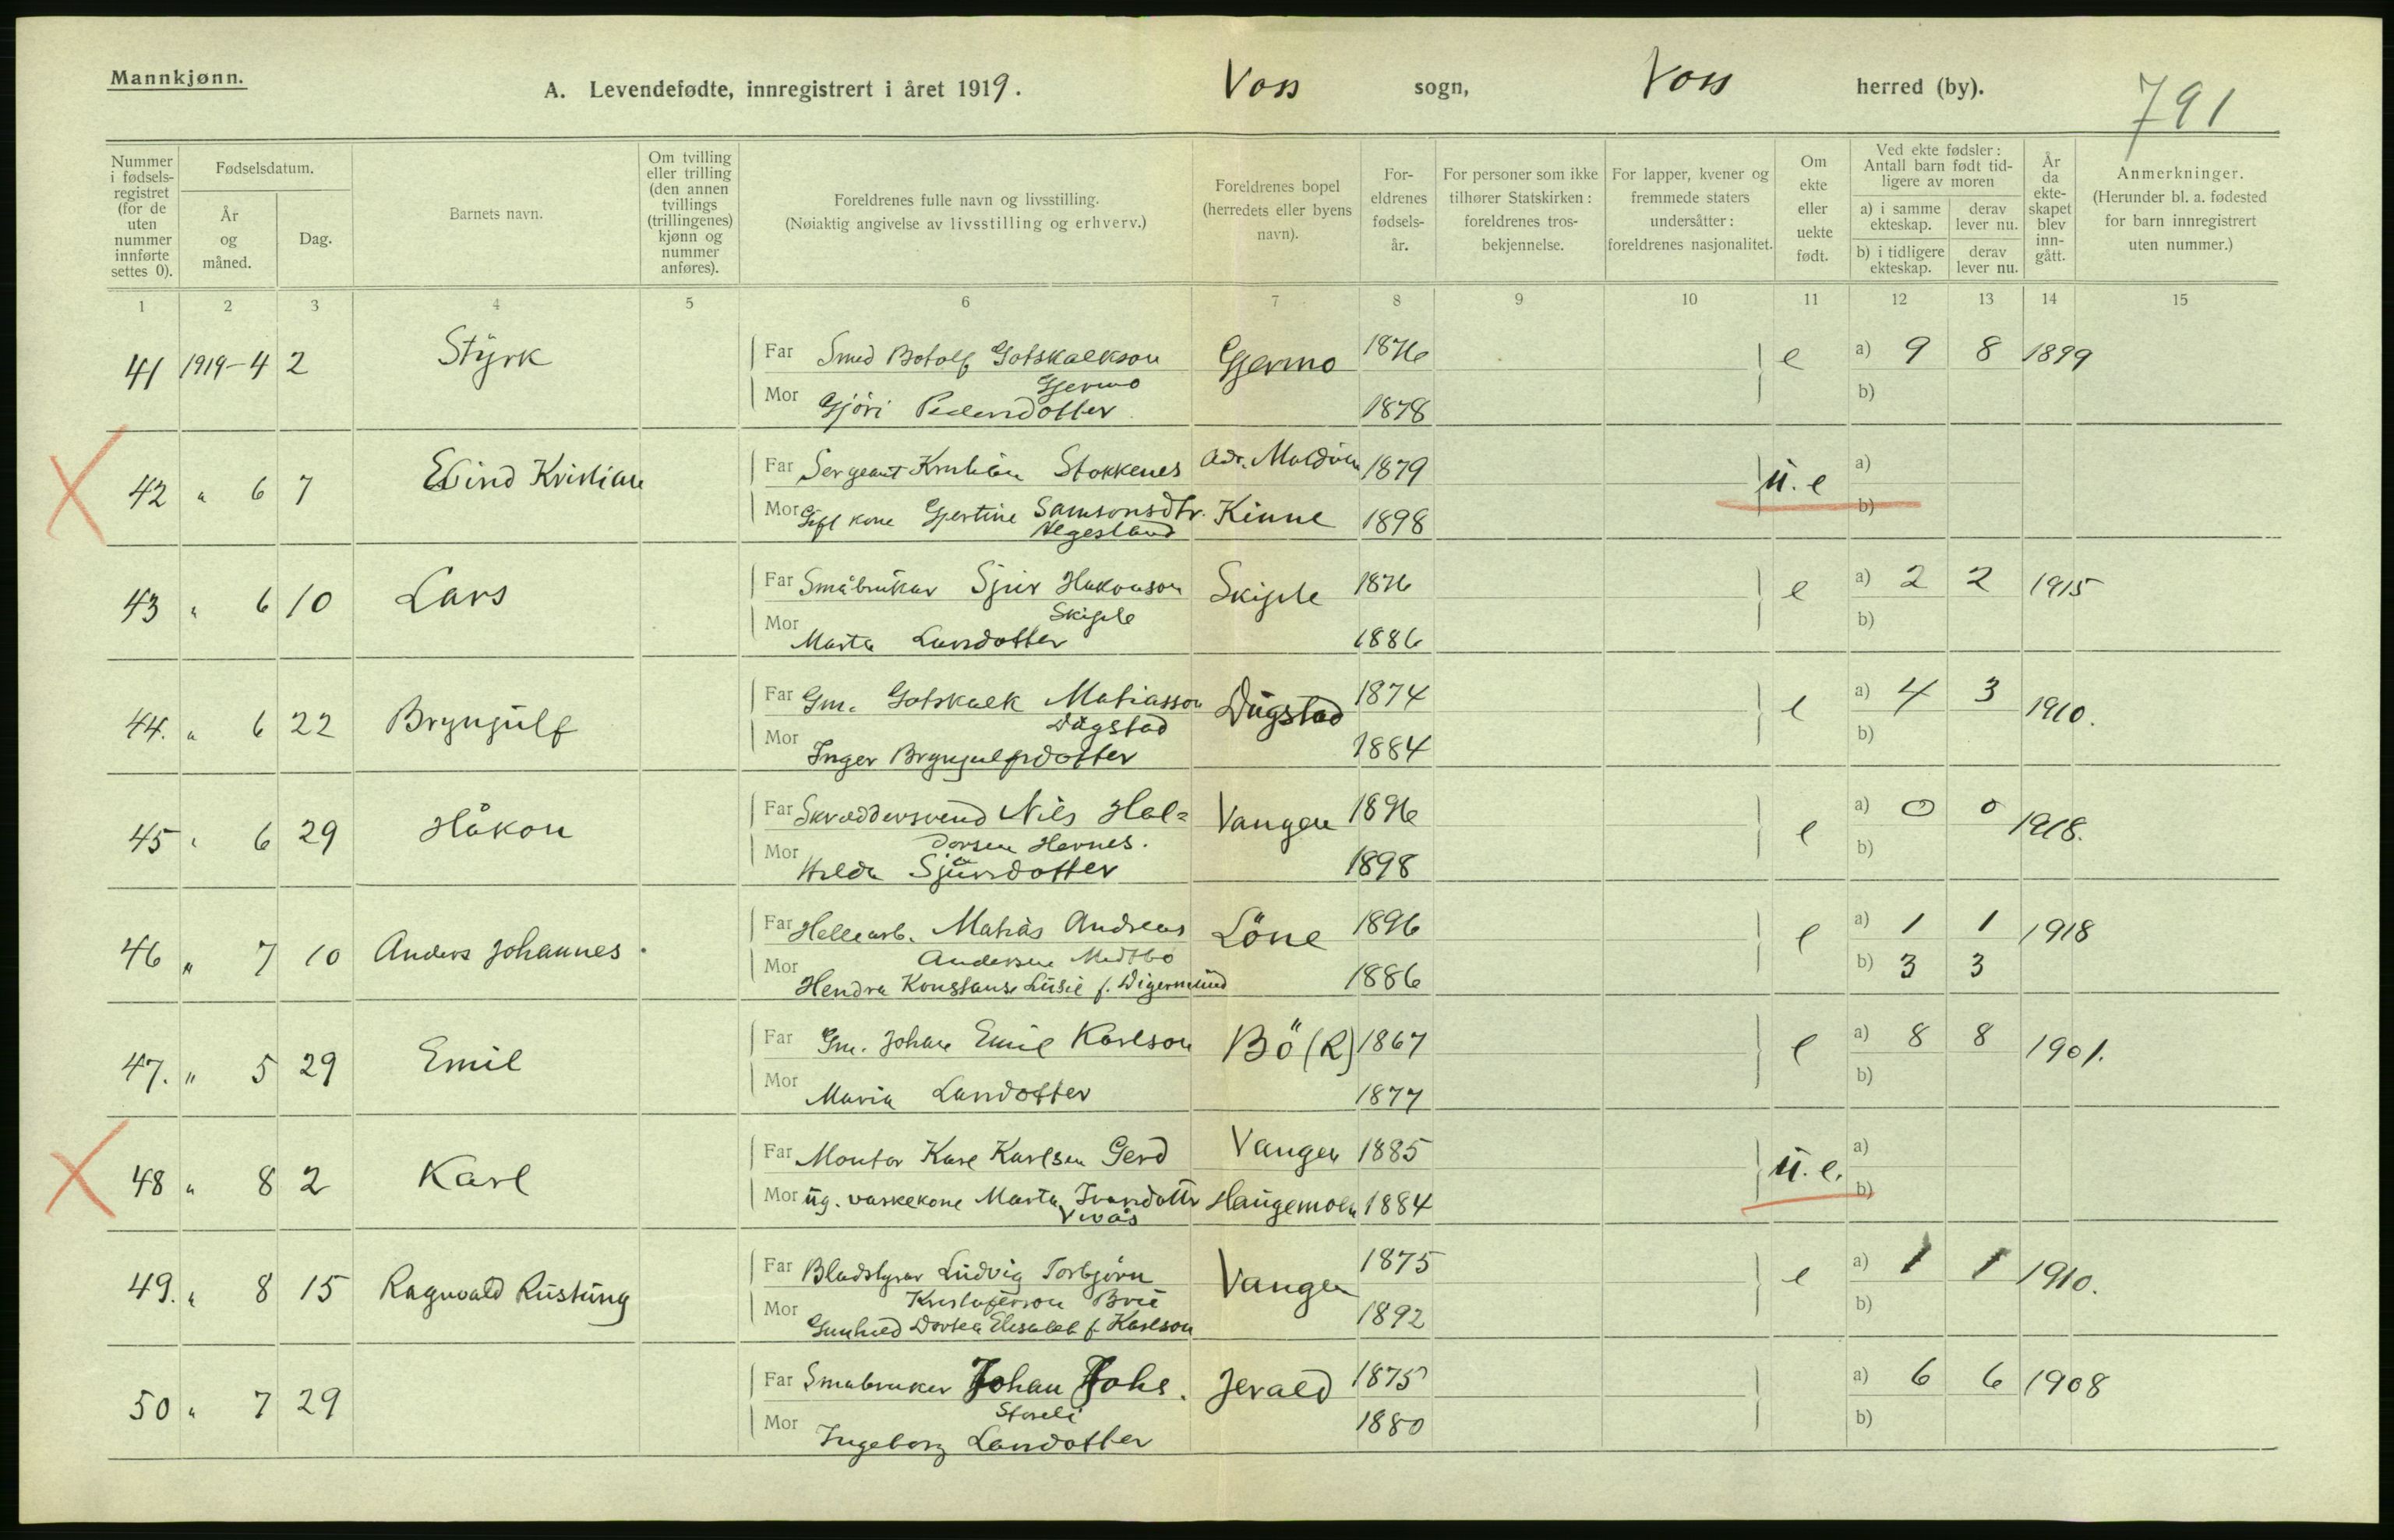 Mannkjønn.
A. Levendefødte, innregistrert i året 1919. Voss sogn, Voss herred (by). 791
Nummer i fødsels-registret (for de uten nummer innførte settes 0).
Fødselsdatum.
År og måned.
Dag.
Barnets navn.
Om tvilling eller trilling (den annen tvillings (trillingenes) kjønn og nummer anføres).
Foreldrenes fulle navn og livsstilling.
(Nøiaktig angivelse av livsstilling og erhverv.)
Foreldrenes bopel (herredets eller byens navn).
For-eldrenes fødsels-år.
For personer som ikke tilhører Statskirken: foreldrenes tros-bekjennelse.
For lapper, kvener og fremmede staters undersåtter: foreldrenes nasjonalitet.
Om ekte eller uekte født.
Ved ekte fødsler: Antall barn født tid-ligere av moren
a) i samme ekteskap.
derav lever nu.
b) i tidligere ekteskap.
derav lever nu.
År da ekte-skapet blev inn-gått.
Anmerkninger.
(Herunder bl. a. fødested for barn innregistrert uten nummer.)
1 2 3 4 5 6 7 8 9 10 11 12 13 14 15
41 1919-4 2 Styrk Far Smed Botolf Gotskalkson Gjermo 1876 e a) 9 8 1899
Gjermo
Mor Gjöri Pedersdotter 1878 b)
42 " 6 7 Eivind Kristian Far Sergeant Kristian Stokkenes adr. Maldöen 1879 u. e a)
Mor Gift kone Gjertine Samsonsdtr. Kinne 1898 b)
Helgesland
43 " 6 10 Lars Far Småbrukar Sjur Hakonson Skiple 1876 e a) 2 2 1915
Skiple
Mor Marta Larsdotter 1886 b)
44. " 6 22 Brynjulf Far Gm. Gotskalk Matiasson Dugstad 1874 e a) 4 3 1910.
Dugstad
Mor Inger Brynjulfsdotter 1884 b)
45 " 6 29 Håkon Far Skreddersvend Nils Hal= Vangen 1896 e a) 0 0 1918.
dorsen Hernes.
Mor Hilda Sjursdotter 1898 b)
46 " 7 10 Anders Johannes Far Hellearb. Matias Andreas Löne 1896 e a) 1 1 1918
Andersen Medtbö
Mor Hendra Konstanse Lusie f. Digermund 1886 b) 3 3
47. " 5 29 Emil Far Gm. Johan Emil Karlson Bö (R) 1867 e a) 8 8 1901.
Mor Maria Larsdotter 1877 b)
48 " 8 2 Karl Far Montør Karl Karlsen Gerd Vangen 1885 u. e. a)
Mor ug. vaskekone Marta Ivarsdottr Haugemoen 1884 b)
Vivås
49. " 8 15 Ragnvald Rustung Far Bladstyrar Ludvig Torbjörn Vangen 1875 e a) 1 1 1910.
Kristoferson Brü
Mor Gunhild Dortea Elisabet f. Karlson 1892 b)
50 " 7 29 Far Småbruker Johan Johs. Jerald 1875 a) 6 6 1908
Storeli
Mor Ingeborg Larsdotter 1880 b)